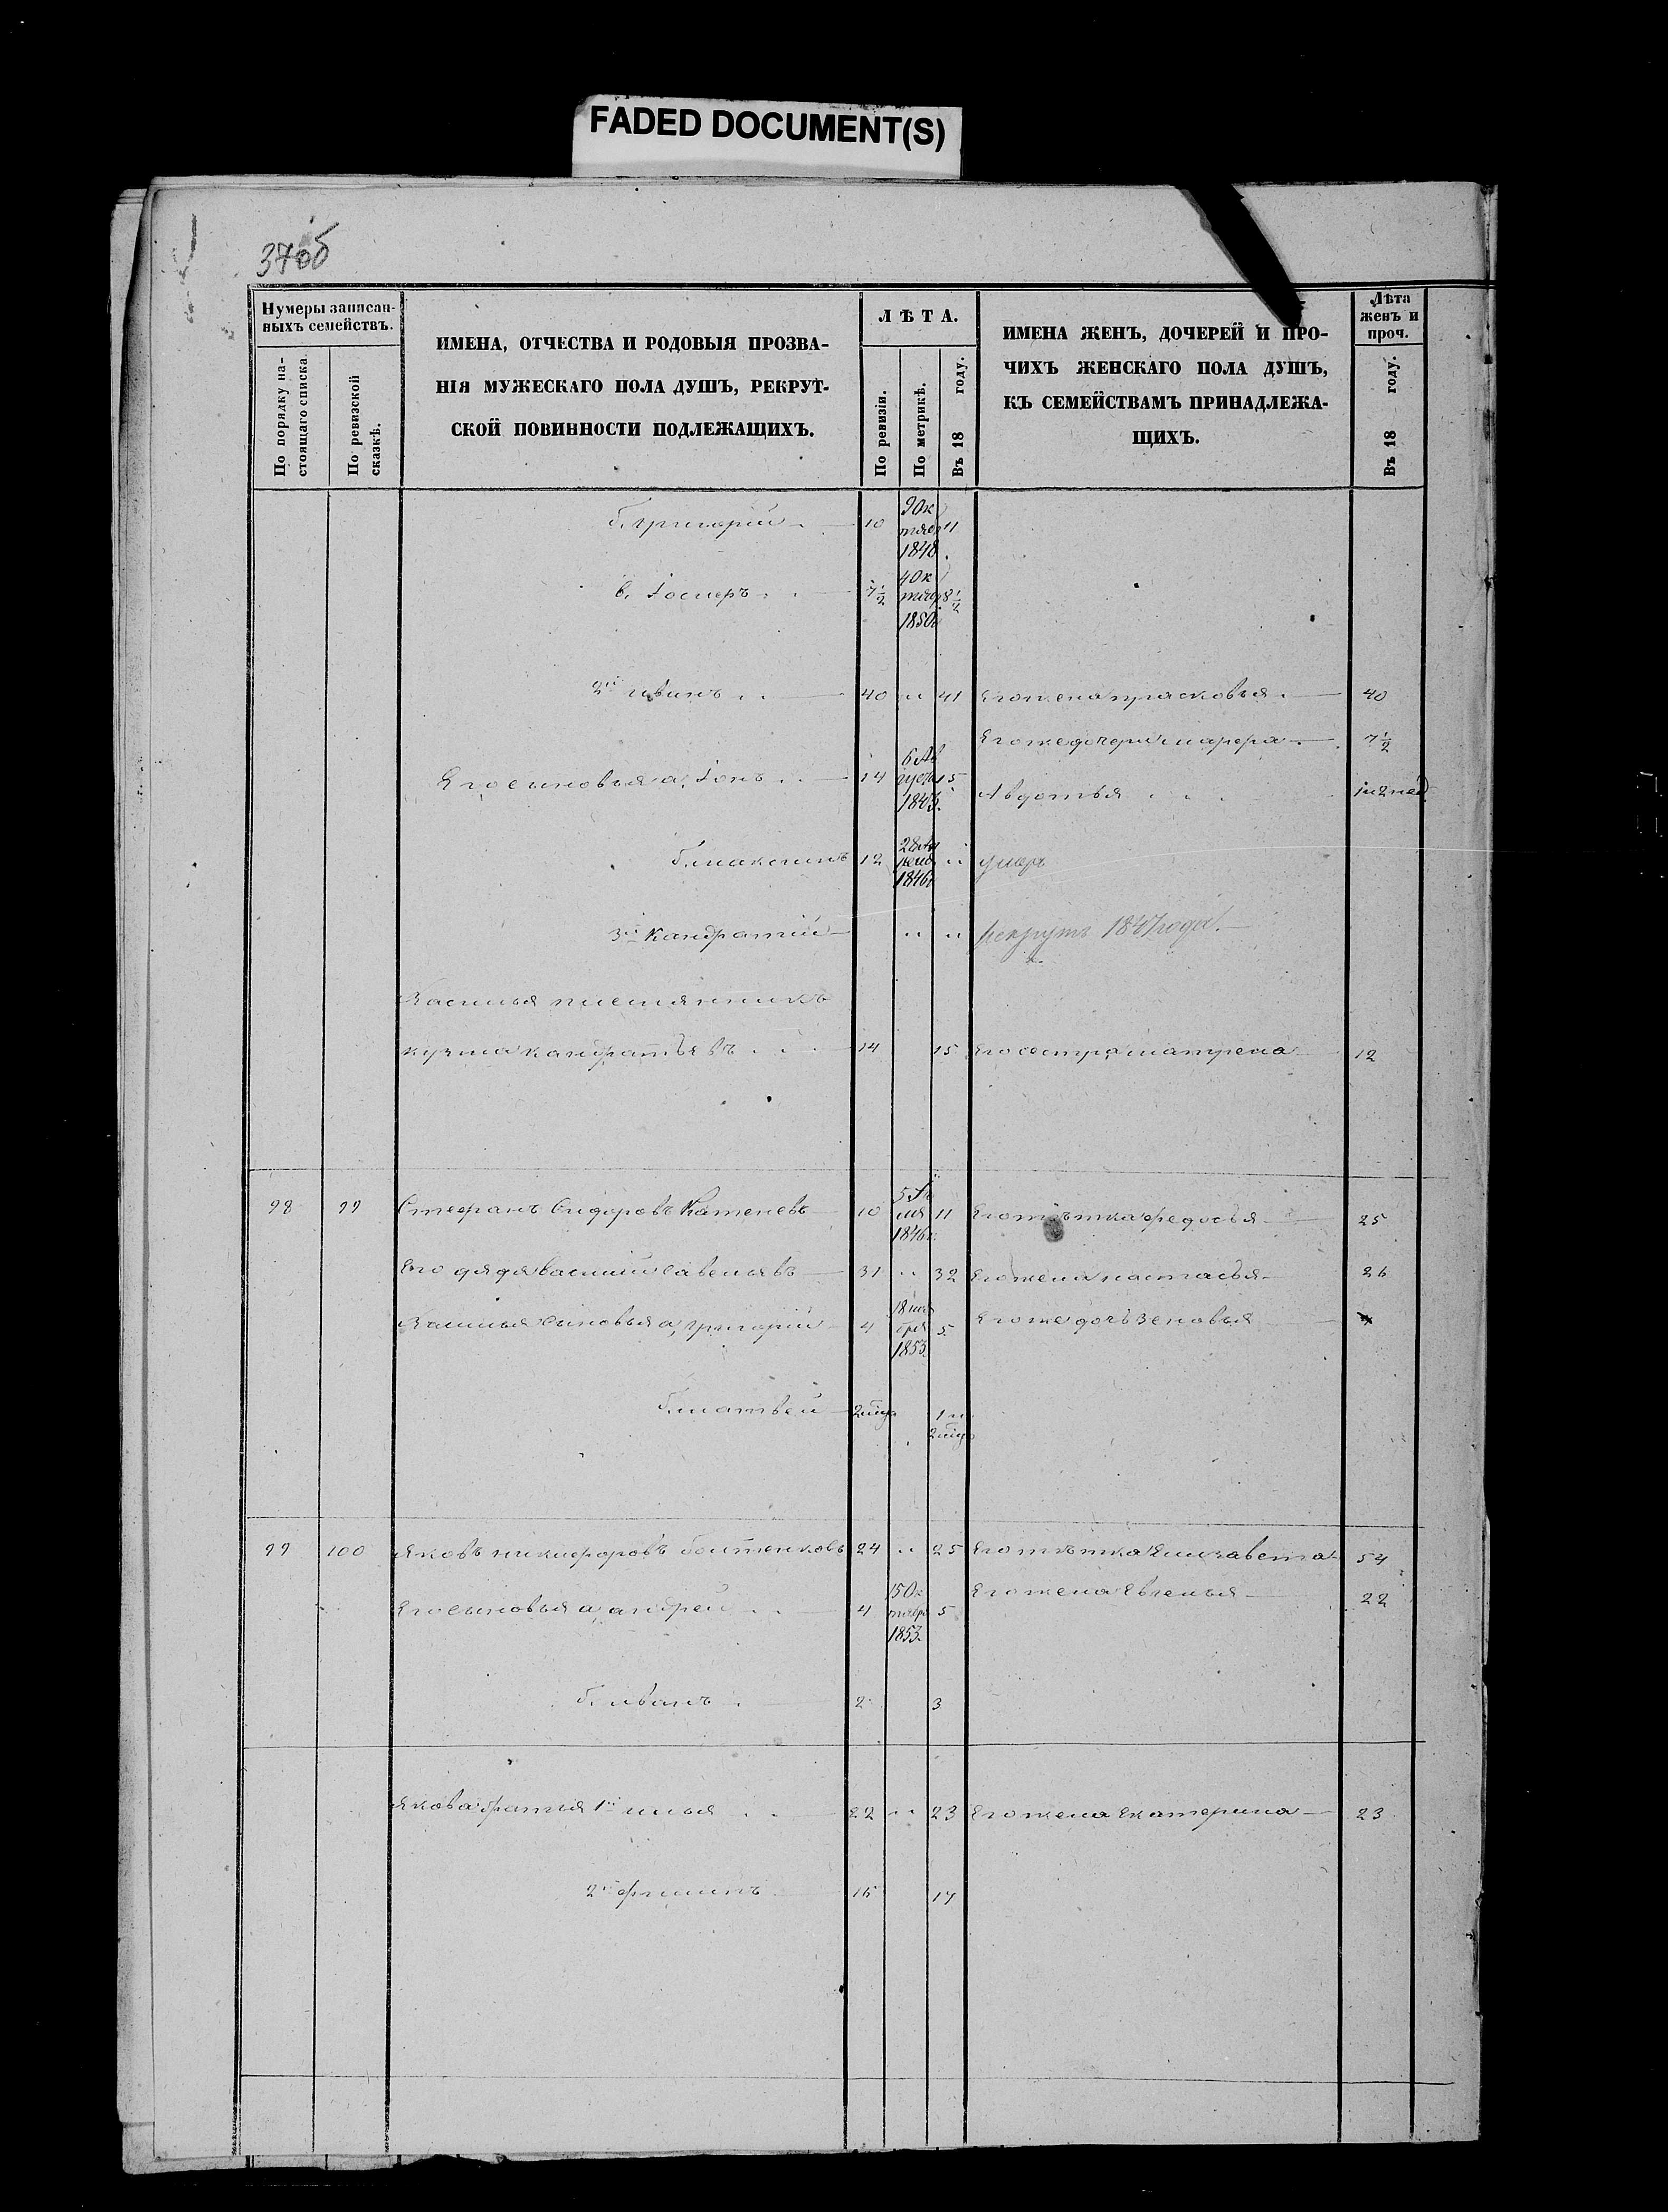 FADED DOCUMENT(S)
370б
Нумеры записан-
ныхъ семействъ.
По порядку на-
стоящаго списка
По ревизской
сказкѣ.
ИМЕНА, ОТЧЕСТВА И РОДОВЫЯ ПРОЗВА-
НІЯ МУЖЕСКАГО ПОЛА ДУШЪ, РЕКРУТ-
СКОЙ ПОВИННОСТИ ПОДЛЕЖАЩИХЪ.
ЛѢТА.
По ревизіи.
По метрикѣ.
Въ 18 году.
ИМЕНА ЖЕНЪ, ДОЧЕРЕЙ И ПРО-
ЧИХЪ ЖЕНСКАГО ПОЛА ДУШЪ,
КЪ СЕМЕЙСТВАМЪ ПРИНАДЛЕЖА-
ЩИХЪ.
Лѣта
женъ и
проч.
Въ 18 году.
б. григорій 10 9 Ок
тяб 11
1848
в. Іосиеръ 7½ 4 Ок
тяб 8½
1850
2й иванъ 40 41 Его жена прасковья 40
Его же дочери марера 7½
Его сыновья а, Іонъ 14 6 Ав
густ 15
1843.
Авдотья 1 и 2 нед
б. максимъ 12
1846 умеръ
3й Кандратій рекрутъ 1847 года
Василья племянникъ
кузма кандратьевъ 14 15 Его сестра матрена 12
98 99 Стефанъ Сидоровъ Катеневъ 10 11 Его тѣтка федосья 25
1846
Его дядя василий савельевъ 31 32 Его жена настасья 26
Василья сыновья а, григорий 4 18 но
бря 5
1853 Его же дочь зеновья
б. матвей
99 100 Яковъ никифоровъ 24 25 Его тѣтка Елизавета 54
Его сыновья а, андрей 4 15 Ок
тябр 5
1853 Его жена Евгенья 22
б. иванъ 2 3
Якова братья 1й илья 22 23 Его жена Екатерина 23
2й филипъ 16 17